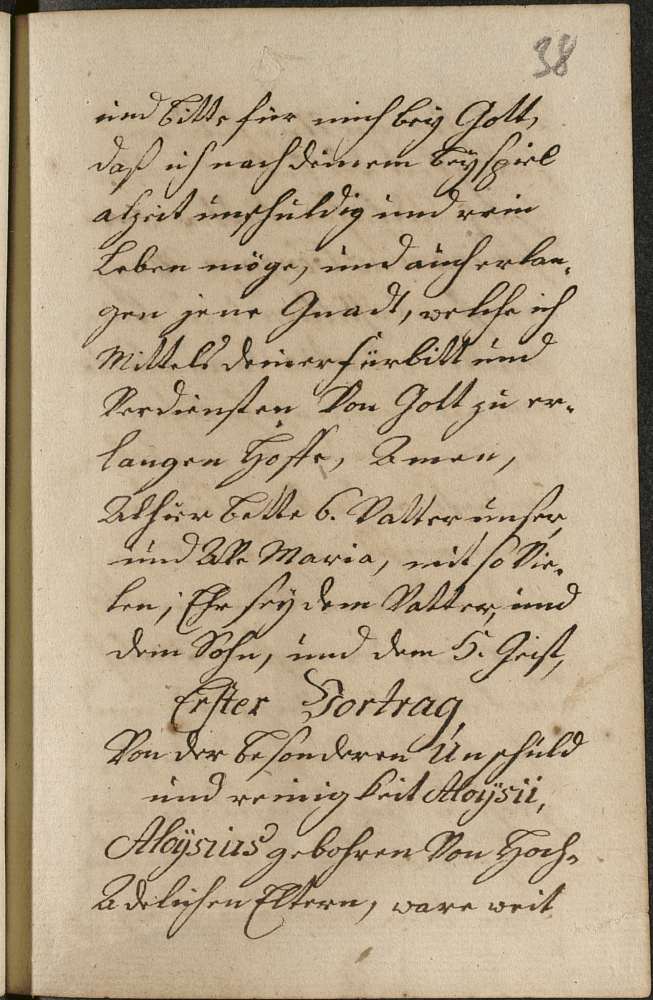 38
und bitte für mich bey Gott,
daß ich nach deinem beyspiel
alzeit unschuldig und rein
Leben möge, und auch erlan-
gen jene Gnadt, welche ich
Mittels deiner fürbitt und
Verdiensten Von Gott zu er-
langen Hoffe, Amen,
Alhier bette 6. Vatter unser,
und Ave Maria, mit so Vie-
len, Ehr sey dem Vatter, und
dem Sohn, und dem H. Geist,
Erster Vortrag
Von der besonderen Unschuld
und reinigkeit Aloÿsii,
Aloÿsius gebohren Von Hoch-
Adelichen Eltern, ware weit